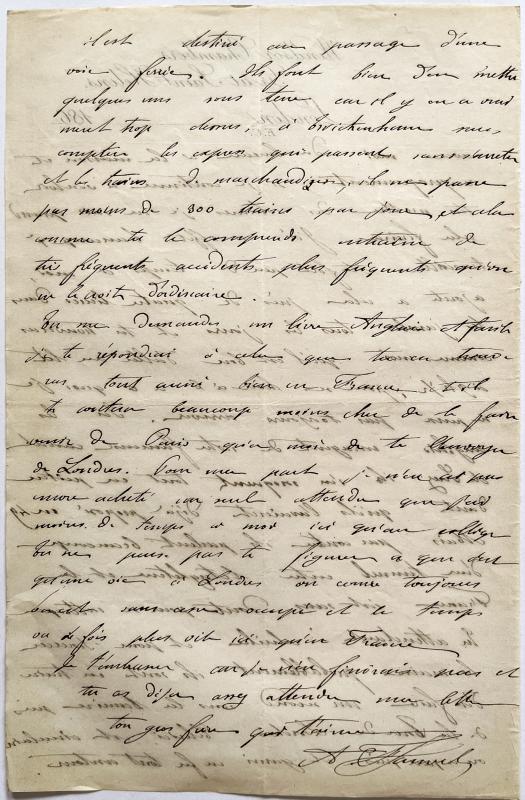 il est destiné au passage d'une
voie ferrée. Ils font bien d'en mettre
quelques uns sous terre car il y en a vrai
ment trop dessus, a Twickenham sans
compter les express qui passent sans s'arreter
et les trains de marchandises, il ne passe
pas moins de 300 trains par jour et cela
comme tu le comprends entraine de
très fréquents accidents plus fréquents qu'on
ne le croit d'ordinaire.
Tu me demandes un livre Anglais
je te répondrai à cela que tu en trouve
ras tout aussi bien en France et il
te coutera beaucoup moins cher de le faire
venir de Paris qu'à moi de te l'envoyer
de Londres. Pour ma part je n'en ai pas
encore acheté car nul attendu que j'ai
moins de temps a moi ici qu'au collège
Tu ne peux pas te figurer a quoi est
une vie a Londres on coure toujours
sans occupé et le temps
va fois plus vite ici qu'en France
Je t'embrasse car je n'en finirais pas et
tu as déjà assez attendu ma lettre
ton gros frère qui t'aime
A